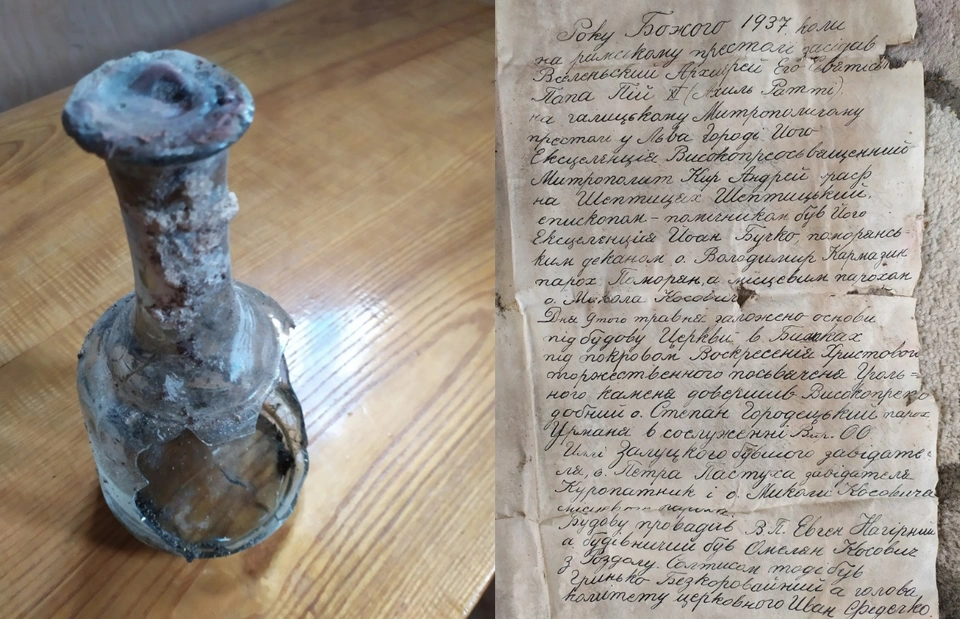 Року Божого 1937, коли
на римському престолі засідав
Вселеньский Архиєрей Его Святість
Папа Пій XI (Ахиль Ратті)
на галицькому Митрополичому
престолі у Льва Городі Його
Ексцеленція Високопреосьвященний
Митрополит Кир Андрей граф
на Шептицях Шептицький,
єпископом-помічником був Його
Ексцеленція Йоан Бучко, поморянсь-
ким деканом о. Володимир Кармазин
парох Поморян, а місцевим парохом
о. Микола Косович
Дня 9того травня заложено основи
під будову Церкви в Бишках
під покровом Воскресенія Христового
торжественного посьвячення Уголь=
ного каменя довершив Високопрепо
добний о. Степан Городецький парох
Урманя в сослуженні Всч. ОО
Іллі Залуцкого бувшого завідате=
ля, о. Петра Пастуха завідателя
Куропатник і о. Миколи Косовича
пароха.
Будову провадив В.П. Евген Нагірний
а будівничий був Омелян Косович
з Роздолу. Солтисом тоді був
Гринько Безкоровайний а голова
комітету церковного Иван Федечко.